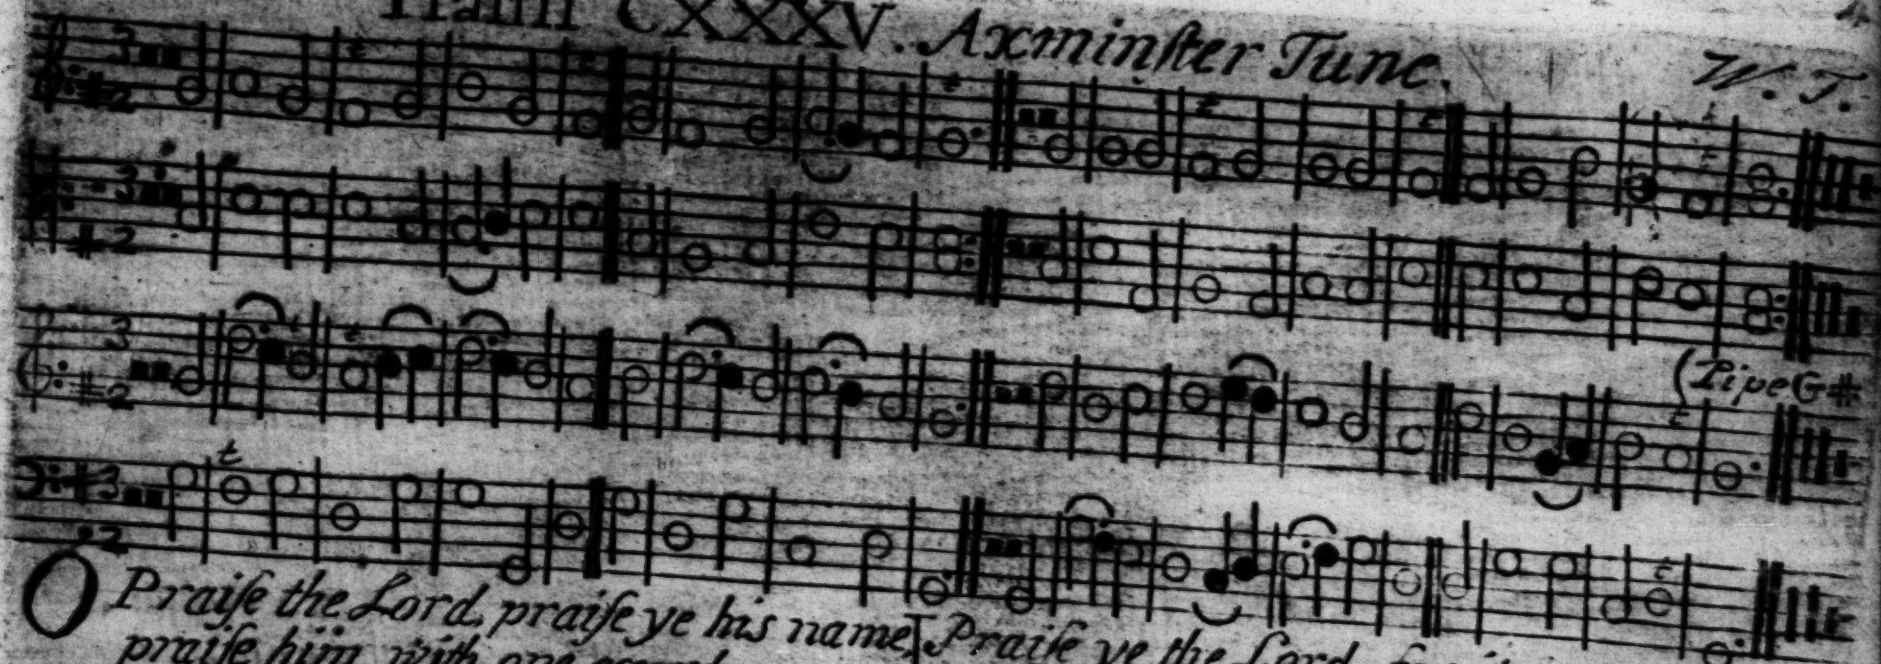 Psalm CXXXV. Axminſter Tune. W. T.
(Pipe G #
O Praiſe the Lord, praiſe ye his name, Praiſe ye the Lord,
praiſe him with one